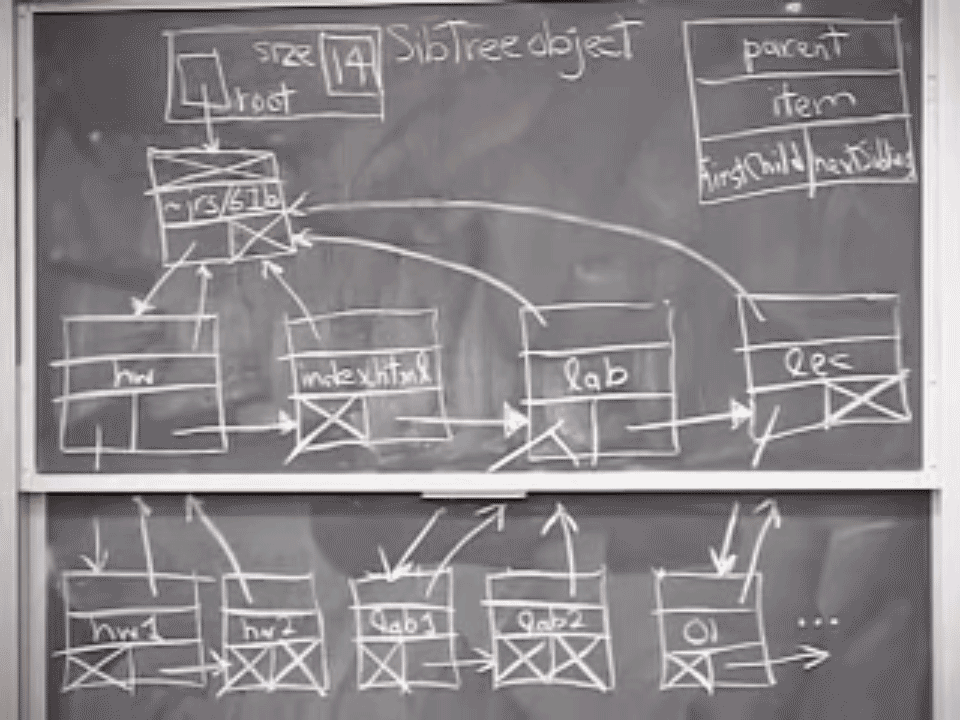 size 14 SibTree object
root
parent
item
firstChild nextSibling
~jrs/61b
hw index.html lab lec
hw1 hw2 lab1 lab2 01 ...